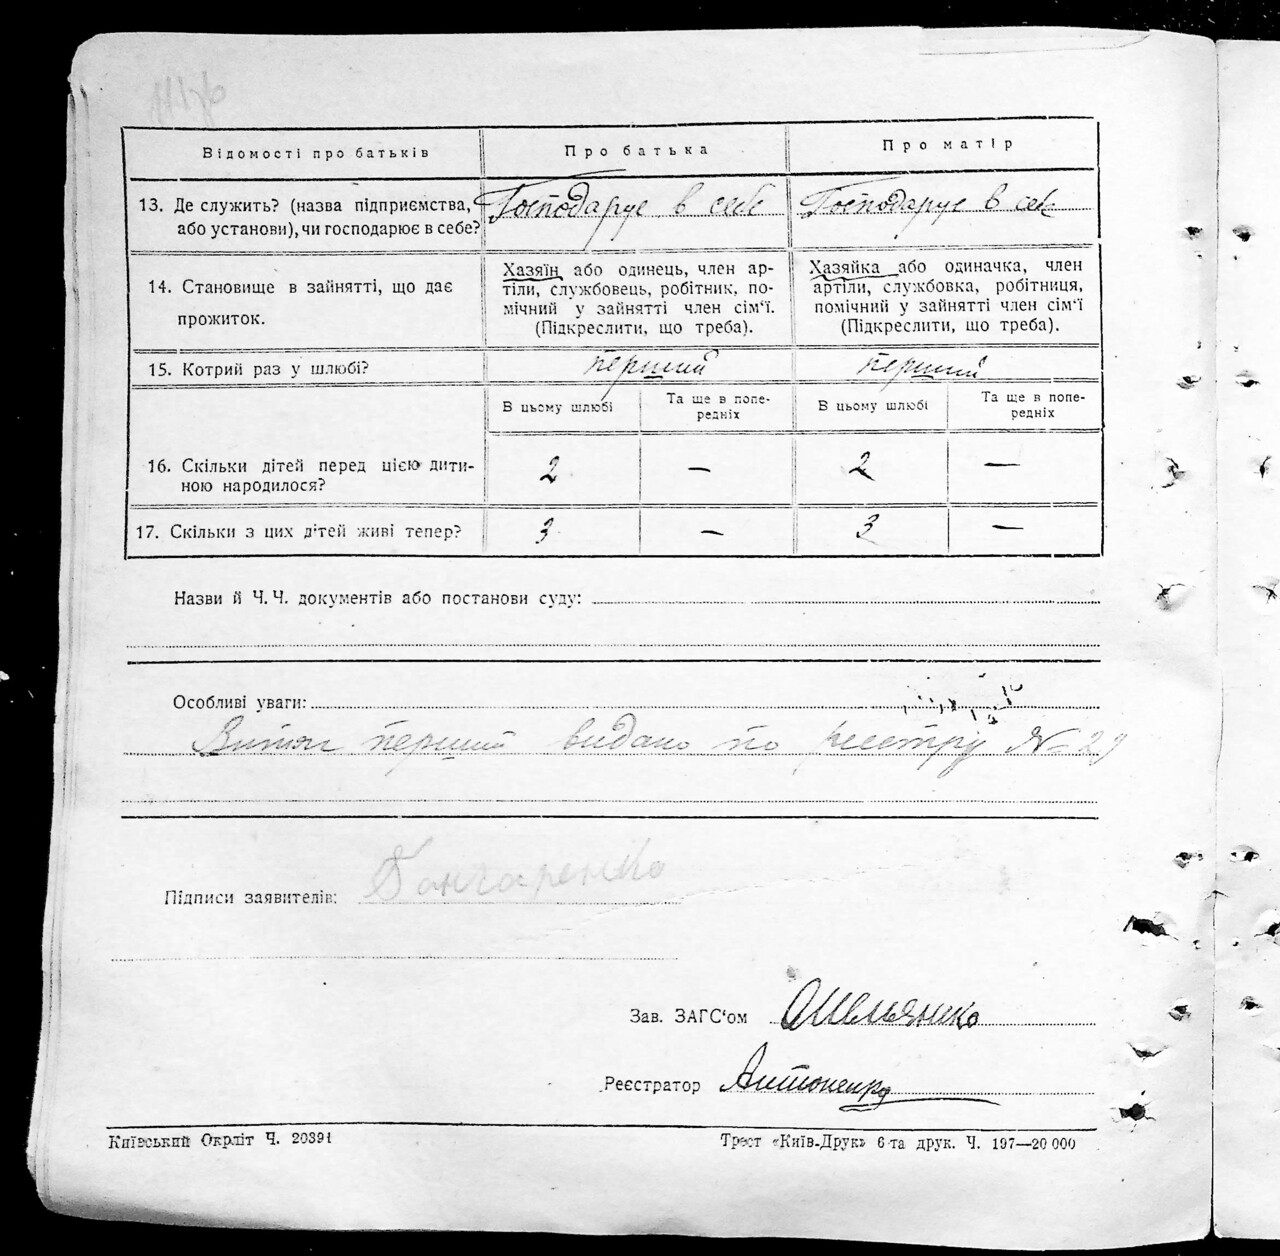 Відомості про батьків Про батька Про матір
13. Де служить? (назва підприємства, або установи), чи господарює в себе?
Господарує в себе
Господарує в себе
14. Становище в зайнятті, що дає
прожиток.
Хазяїн або одинець, член ар-
тіли, службовець, робітник, по-
мічний у зайнятті член сім'ї.
(Підкреслити, що треба).
Хазяйка або одиначка, член
артіли, службовка, робітниця,
помічний у зайнятті член сім'ї
(Підкреслити, що треба).
15. Котрий раз у шлюбі? перший перший
В цьому шлюбі
Та ще в попе-
редніх
В цьому шлюбі
Та ще в попе-
редніх
16. Скільки дітей перед цією дити-
ною народилося?
2 — 2 —
17. Скільки з цих дітей живі тепер? 3 — 3 —
Назви й Ч. Ч. документів або постанови суду:
Особливі уваги:
Витяг перший видано по реєстру № 29
Підписи заявителів: Гончаренко
Зав. ЗАГС'ом Омельянко
Реєстратор Антоненко
Київський Окрліт Ч. 20391 Трест «Київ-Друк» 6-та друк. Ч. 197—20 000